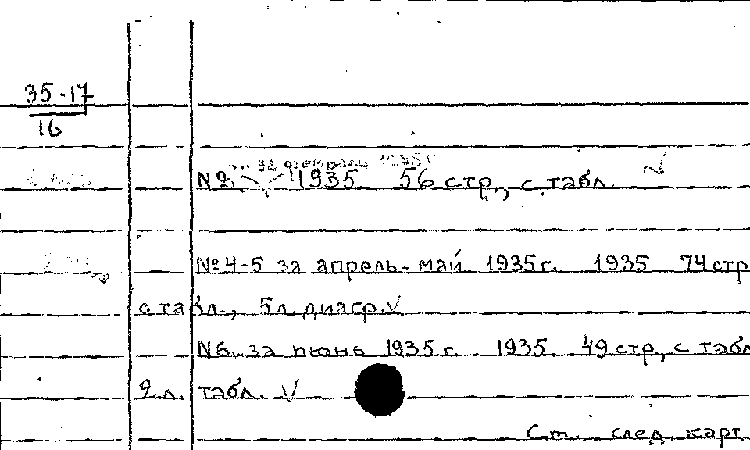 35-17
16
за февраль 1935 г.
№2. 1935. 56 стр., с табл.
№4-5 за апрель-май 1935 г. 1935 74 стр
с табл., 5 л. диагр. V
№6 за июнь 1935 г. 1935. 49 стр, с табл
2 л. табл. V
См. след. карт